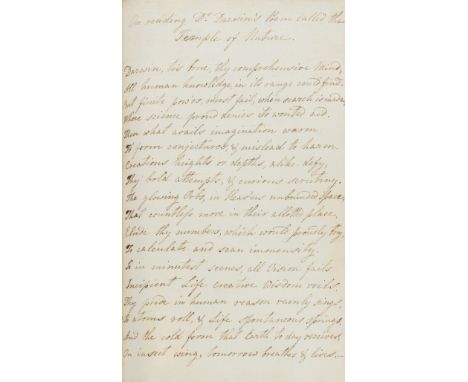 On reading Dr. Darwin's Poem called the
Temple of Nature.
Darwin, tis true, thy comprehensive Mind,
All human knowledge, in its range could find.
But finite pow'rs, must fail, when search is made,
Where science proud denies its wonted aid.
Then what avails imagination warm
To form conjectures, & mislead to harm
Creations heights or depths, alike defy,
Thy bold attempts, & curious scrutiny.
The glowing Orbs, in Heav'ns unbounded space,
That countless move in their allotted place,
Elude thy numbers, which would proudly try
To calculate and scan immensity.
So in minutest scenes, all Vision fails
Incipient Life creative Wisdom veils.
Thy pride in human reason vainly sings,
How atoms roll, & Life spontaneous springs,
And the cold form that Earth to day receives
On insect wing, tomorrow breathes & lives.—